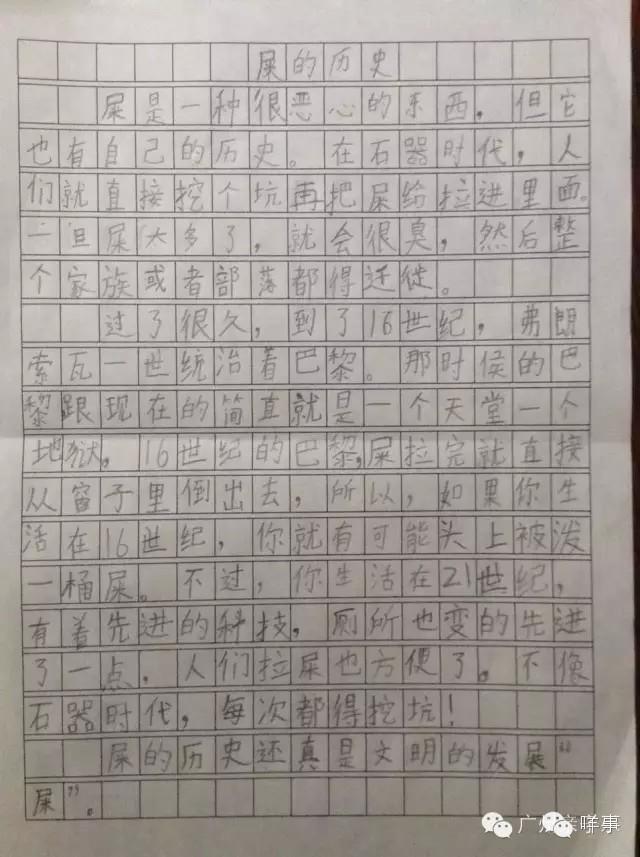 屎的历史
屎是一种很恶心的东西，但它
也有自己的历史。在石器时代，人
们就直接挖个坑再把屎给拉进里面。
一旦屎太多了，就会很臭，然后整
个家族或者部落都得迁徙。
过了很久，到了16世纪，弗朗
索瓦一世统治着巴黎。那时侯的巴
黎跟现在的简直就是一个天堂一个
地狱。16世纪的巴黎，屎拉完就直接
从窗子里倒出去，所以，如果你生
活在16世纪，你就有可能头上被泼
一桶屎。不过，你生活在21世纪，
有着先进的科技，厕所也变的先进
了一点，人们拉屎也方便了。不像
石器时代，每次都得挖坑！
屎的历史还真是文明的发展“
屎”。
广州亲咩事